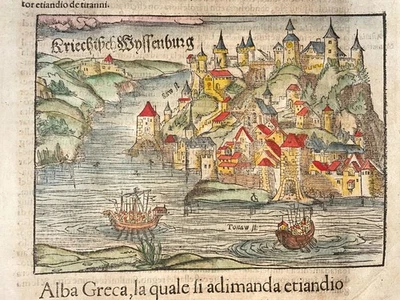 tor etiandio de tiranni.
Kriechisch Wyssenburg
Saw fl
Tonaw fl.
Alba Greca, la quale si adimanda etiandio